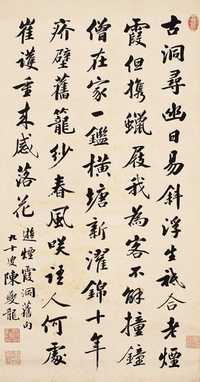 古洞尋幽日易斜浮生祗合老煙
霞但携蠟屐我為客不解撞鐘
僧在家一鑑橫塘新濯錦十年
疥壁舊籠紗春風咲語人何處
崔護重来感落花 遊煙霞洞舊句
九十叟陳夔龍